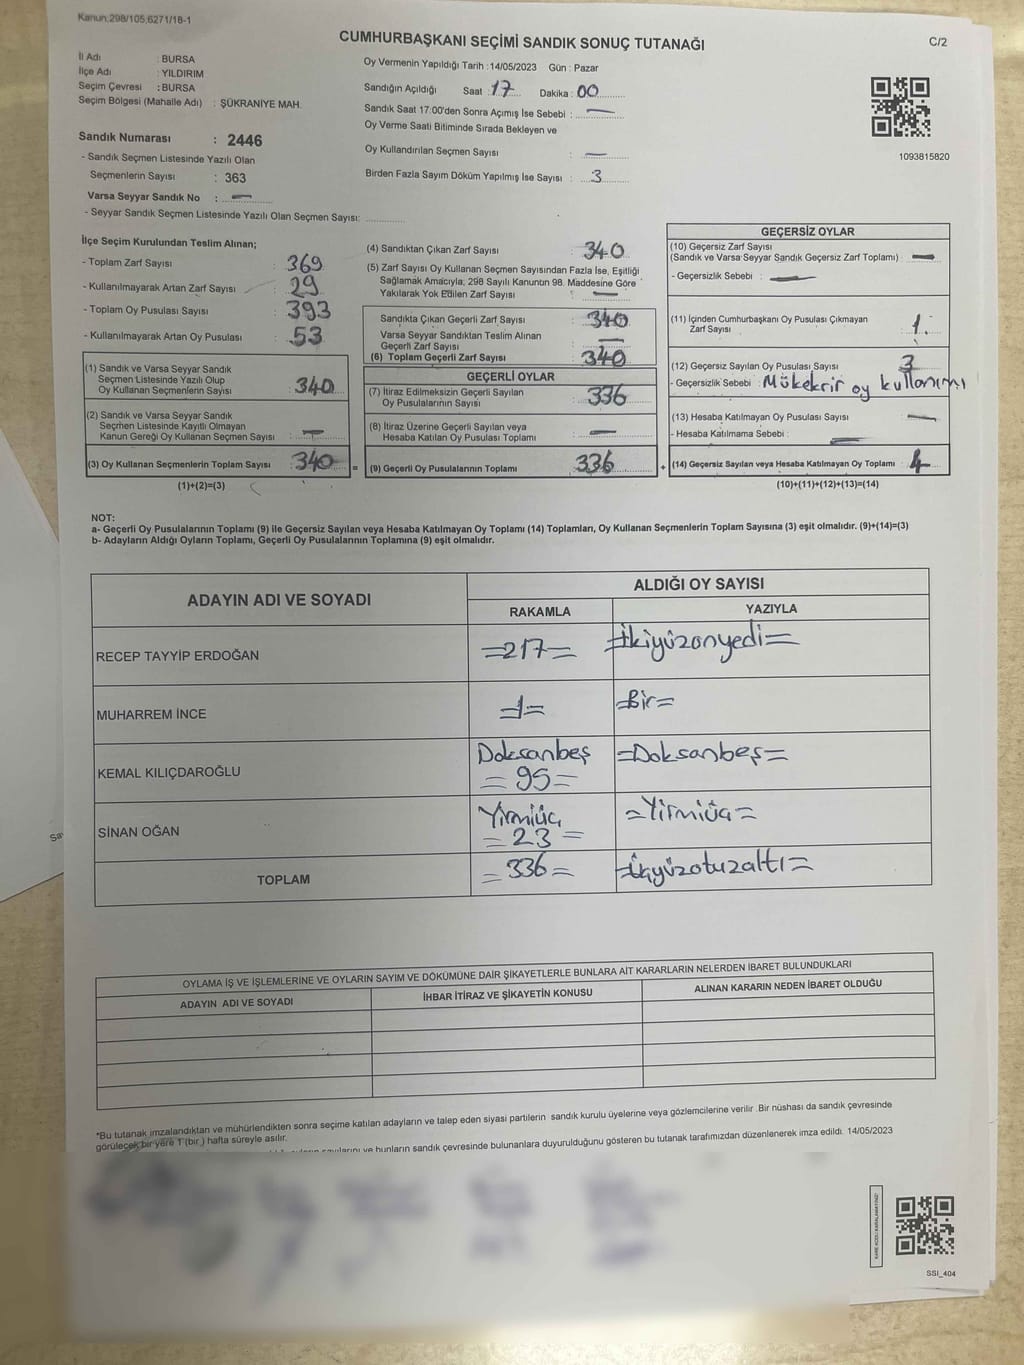 Kanun;298/105;6271/18-1
CUMHURBAŞKANI SEÇİMİ SANDIK SONUÇ TUTANAĞI
C/2
İl Adı : BURSA
İlçe Adı : YILDIRIM
Seçim Çevresi : BURSA
Seçim Bölgesi (Mahalle Adı) : ŞÜKRANİYE MAH.
Sandık Numarası : 2446
- Sandık Seçmen Listesinde Yazılı Olan
Seçmenlerin Sayısı : 363
Varsa Seyyar Sandık No : —
- Seyyar Sandık Seçmen Listesinde Yazılı Olan Seçmen Sayısı:
Oy Vermenin Yapıldığı Tarih : 14/05/2023 Gün : Pazar
Sandığın Açıldığı Saat : 17 Dakika : 00
Sandık Saat 17:00'den Sonra Açımış İse Sebebi : —
Oy Verme Saati Bitiminde Sırada Bekleyen ve
Oy Kullandırılan Seçmen Sayısı : —
Birden Fazla Sayım Döküm Yapılmış İse Sayısı : 3
1093815820
İlçe Seçim Kurulundan Teslim Alınan;
- Toplam Zarf Sayısı : 369
- Kullanılmayarak Artan Zarf Sayısı : 29
- Toplam Oy Pusulası Sayısı : 393
- Kullanılmayarak Artan Oy Pusulası : 53
(1) Sandık ve Varsa Seyyar Sandık
Seçmen Listesinde Yazılı Olup
Oy Kullanan Seçmenlerin Sayısı : 340
(2) Sandık ve Varsa Seyyar Sandık
Seçmen Listesinde Kayıtlı Olmayan
Kanun Gereği Oy Kullanan Seçmen Sayısı : —
(3) Oy Kullanan Seçmenlerin Toplam Sayısı : 340
(1)+(2)=(3)
(4) Sandıktan Çıkan Zarf Sayısı : 340
(5) Zarf Sayısı Oy Kullanan Seçmen Sayısından Fazla İse, Eşitliği
Sağlamak Amacıyla, 298 Sayılı Kanunun 98. Maddesine Göre
Yakılarak Yok Edilen Zarf Sayısı : —
Sandıkta Çıkan Geçerli Zarf Sayısı : 340
Varsa Seyyar Sandıktan Teslim Alınan
Geçerli Zarf Sayısı : —
(6) Toplam Geçerli Zarf Sayısı : 340
GEÇERLİ OYLAR
(7) İtiraz Edilmeksizin Geçerli Sayılan
Oy Pusulalarının Sayısı : 336
(8) İtiraz Üzerine Geçerli Sayılan veya
Hesaba Katılan Oy Pusulası Toplamı : —
= (9) Geçerli Oy Pusulalarının Toplamı 336
GEÇERSİZ OYLAR
(10) Geçersiz Zarf Sayısı
(Sandık ve Varsa Seyyar Sandık Geçersiz Zarf Toplamı) : —
- Geçersizlik Sebebi : —
(11) İçinden Cumhurbaşkanı Oy Pusulası Çıkmayan
Zarf Sayısı : 1.
(12) Geçersiz Sayılan Oy Pusulası Sayısı : 3
- Geçersizlik Sebebi : Mükekrir oy kullanımı
(13) Hesaba Katılmayan Oy Pusulası Sayısı : —
- Hesaba Katılmama Sebebi : —
+ (14) Geçersiz Sayılan veya Hesaba Katılmayan Oy Toplamı : 4
(10)+(11)+(12)+(13)=(14)
NOT:
a- Geçerli Oy Pusulalarının Toplamı (9) ile Geçersiz Sayılan veya Hesaba Katılmayan Oy Toplamı (14) Toplamları, Oy Kullanan Seçmenlerin Toplam Sayısına (3) eşit olmalıdır. (9)+(14)=(3)
b- Adayların Aldığı Oyların Toplamı, Geçerli Oy Pusulalarının Toplamına (9) eşit olmalıdır.
ADAYIN ADI VE SOYADI
ALDIĞI OY SAYISI
RAKAMLA YAZIYLA
RECEP TAYYİP ERDOĞAN =217= =İkiyüzonyedi=
MUHARREM İNCE =1= =Bir=
KEMAL KILIÇDAROĞLU Doksanbeş =95= =Doksanbeş=
SİNAN OĞAN Yirmiüç =23= =Yirmiüç=
TOPLAM =336= =Üçyüzotuzaltı=
OYLAMA İŞ VE İŞLEMLERİNE VE OYLARIN SAYIM VE DÖKÜMÜNE DAİR ŞİKAYETLERLE BUNLARA AİT KARARLARIN NELERDEN İBARET BULUNDUKLARI
ADAYIN ADI VE SOYADI İHBAR İTİRAZ VE ŞİKAYETİN KONUSU ALINAN KARARIN NEDEN İBARET OLDUĞU
*Bu tutanak imzalandıktan ve mühürlendikten sonra seçime katılan adayların ve talep eden siyasi partilerin sandık kurulu üyelerine veya gözlemcilerine verilir .Bir nüshası da sandık çevresinde
görülecek bir yere 1 (bir ) hafta süreyle asılır.
ve bunların sandık çevresinde bulunanlara duyurulduğunu gösteren bu tutanak tarafımızdan düzenlenerek imza edildi. 14/05/2023
KARE KODU KARALAMAYINIZ!
SSI_404